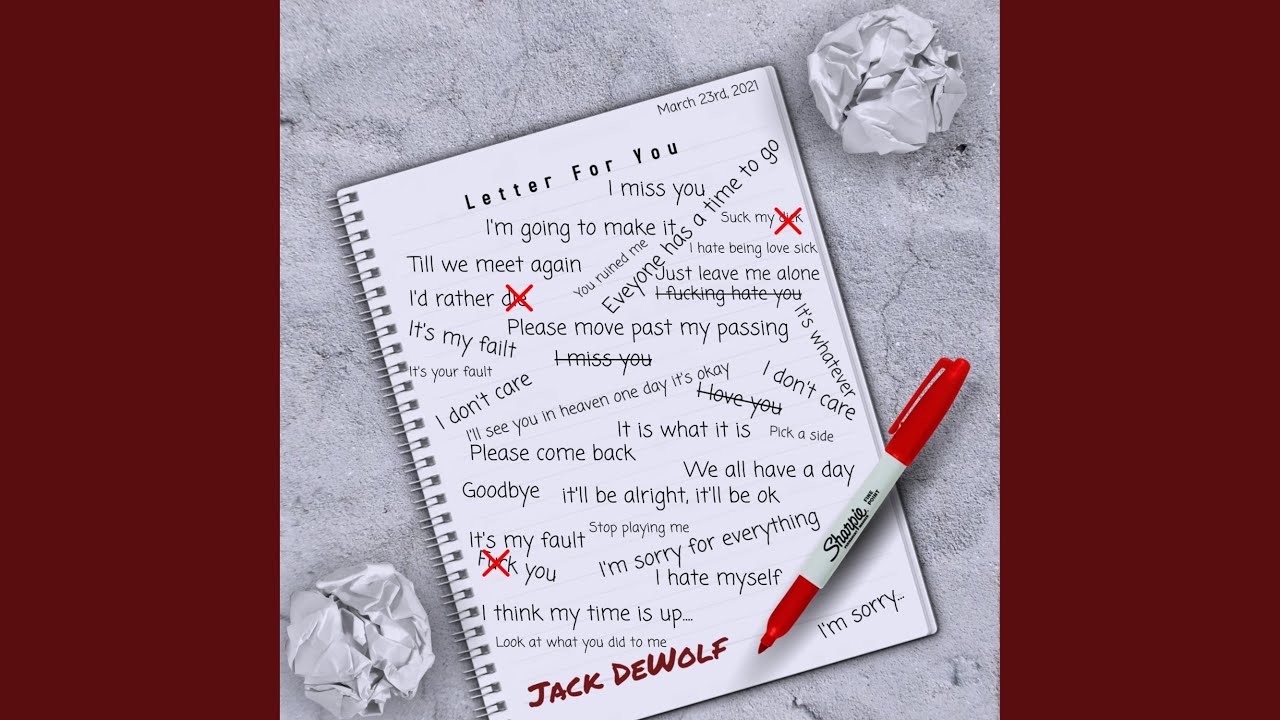 March 23rd, 2021
Letter For You
I miss you
Eveyone has a time to go
I'm going to make it
Suck my dick
I hate being love sick
You ruined me
Till we meet again
Just leave me alone
I'd rather die
I fucking hate you
It's whatever
Please move past my passing
It's my failt
I miss you
It's your fault
I don't care
I don't care
I'll see you in heaven one day it's okay
I love you
It is what it is
Pick a side
Please come back
We all have a day
Goodbye
it'll be alright, it'll be ok
Stop playing me
It's my fault
I'm sorry for everything
Fuck you
I hate myself
I think my time is up....
I'm sorry...
Look at what you did to me
Jack DeWolf
Sharpie
FINE POINT